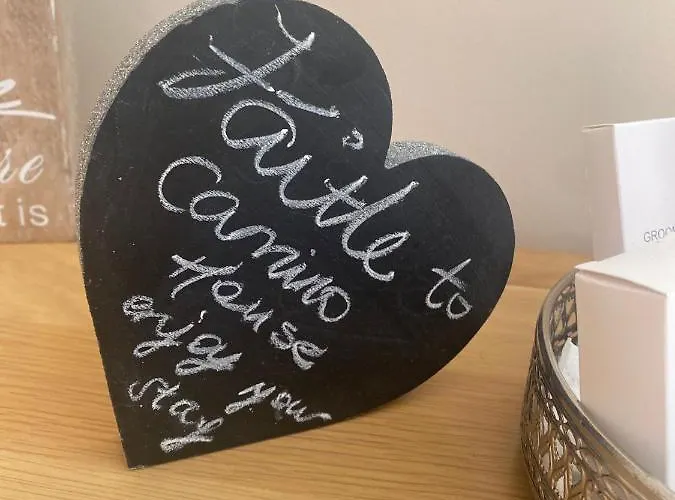 Faitle to
Camino
House
enjoy your
stay
re
t is
GROO